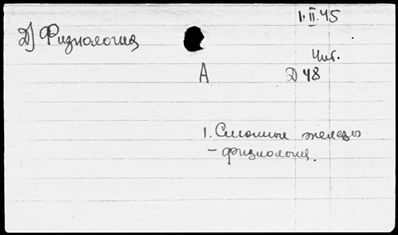 1.II.45
Д) Физиология
Чит.
А
Д 48
1. Слюнные железы
- физиология.